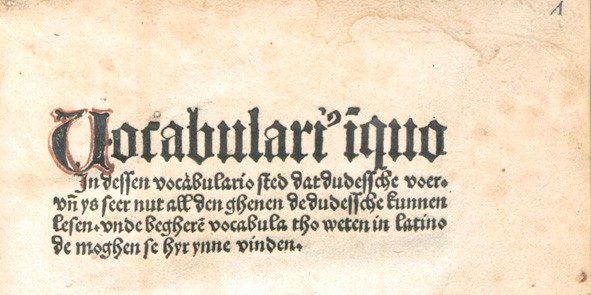 1
Vocabulariꝰ īquo
In dessen vocabulario sted dat dudessche voer⸗
vn̄ ys seer nut all den ghenen de dudessche kunnen
lesen⸗vnde begherē vocabula tho weten in latino
de moghen se hyr ynne vinden⸗